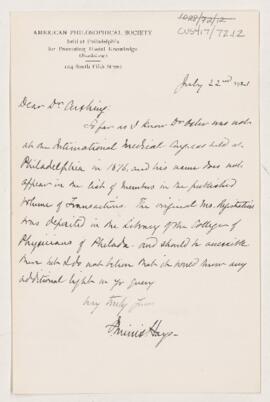 AMERICAN PHILOSOPHICAL SOCIETY
held at Philadelphia
for Promoting Useful Knowledge
104 South Fifth Street
CUS417/72.12
July 22nd 1921
Dear Dr. Cushing:
So far as I know Dr. Osler was not
at the International Medical Congress held at
Philadelphia in 1876, and his name does not
appear in the list of members in the published
volume of Transactions. The original Ms. Registration
was deposited in the Library of the College of
Physicians of Philada. and should be accessible
there but I do not believe that it would throw any
additional light on yr query
Very truly yours
Minis Hays